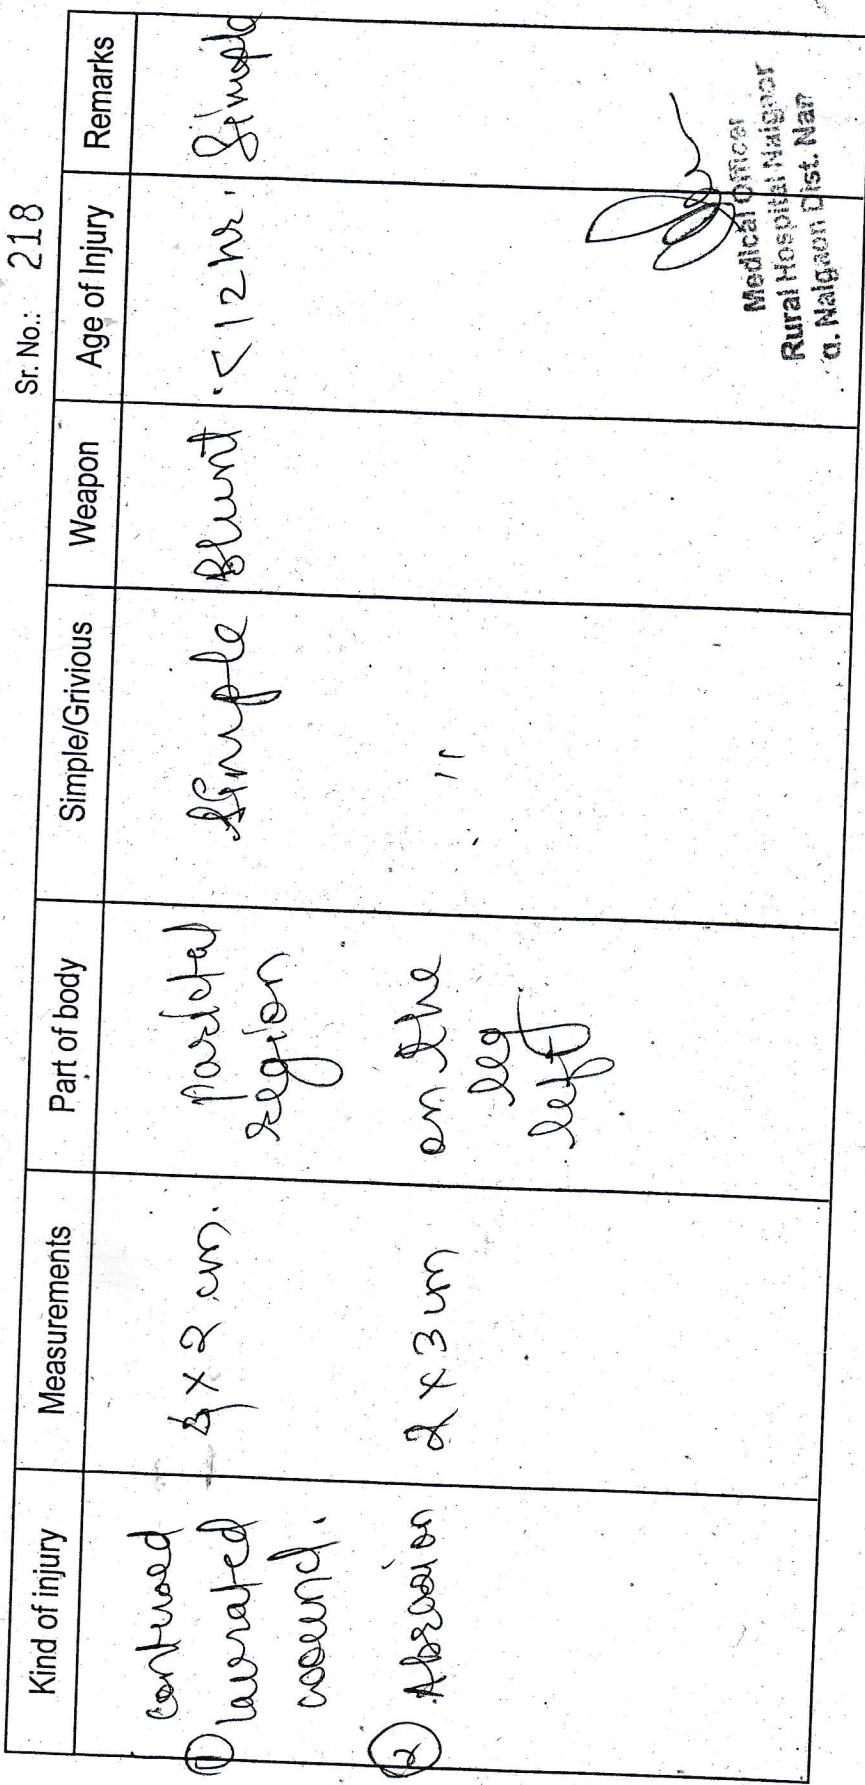 Sr. No.: 218
Kind of injury Measurements Part of body Simple/Grivious Weapon Age of Injury Remarks
Contused
① lacerated
wound.
× 2 cm.
Parietal
region
Simple
Blunt
<12 hr.
Simple
② Abrasion
2 × 3 cm
on the
leg
left
11
Medical Officer
Rural Hospital Naigaon
Naigaon Dist. Nan